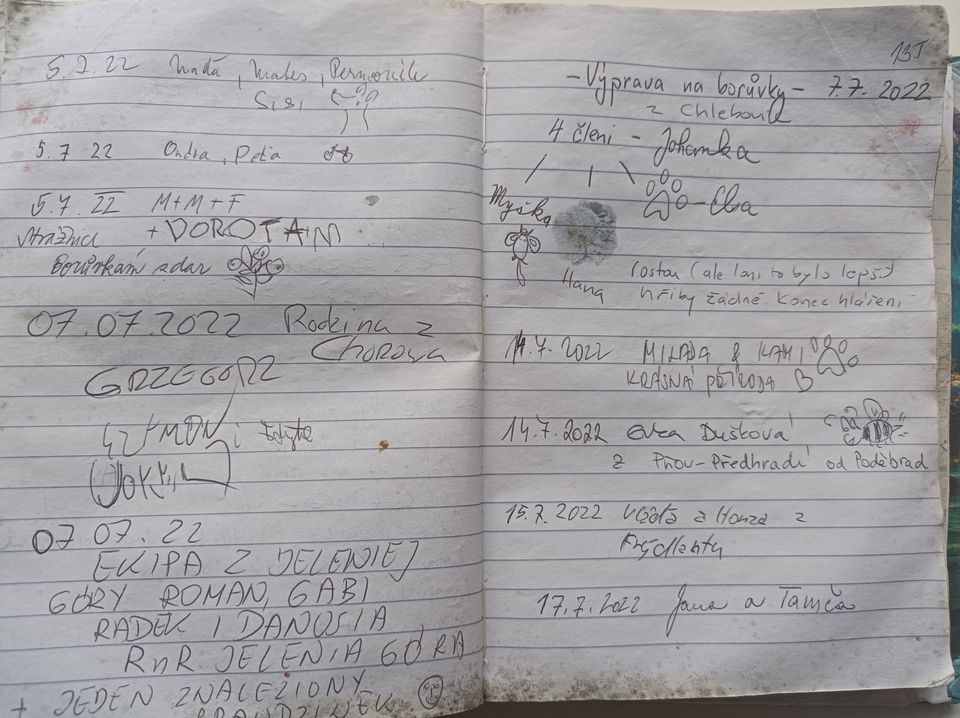 5.7.22 Naďa, Mates, Permoník
Sisi
5.7 22 Ondra, Peťa
5.7 22 M+M+F
Strážnice + DOROTA
Borůvkám zdar
07.07.2022 Rodzina z
Chorzowa
GRZEGORZ
SZYMON i Edyta
07 07.22
EKIPA Z JELENIEJ
GÓRY ROMAN, GABI
RADEK I DANUSIA
RnR JELENIA GÓRA
+ JEDEN ZNALEZIONY
13T
- Výprava na borůvky - 7.7.2022
z Chleboule
4 členi - Johanka
Myška
Eba
Hana
rostou (ale loni to bylo lepší)
hřiby žádné. Konec hlášení
14.7.2022 MILADA & KAMI
KRÁSNÁ PŘÍRODA
14.7.2022 Eva Dušková
z Pňov-Předhradí od Poděbrad
15.7.2022 Vlaďa a Honza z
Frýdlantu
17.7.2022 Jana a Tamča